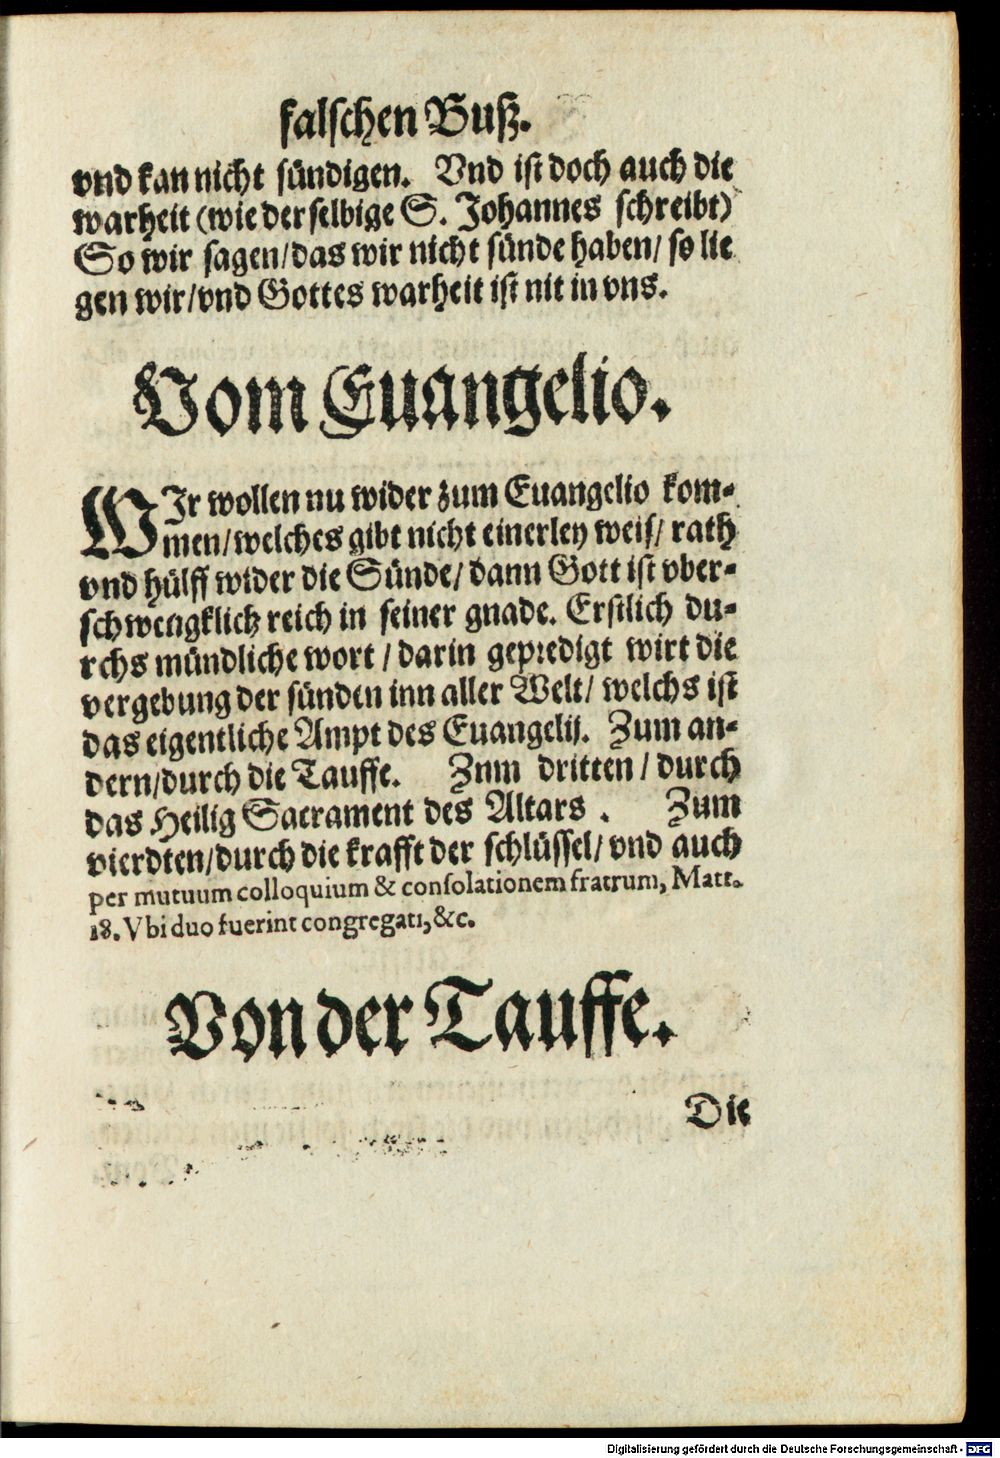 falschen Buß.
vnd kan nicht sündigen. Vnd ist doch auch die
warheit (wie der selbige S. Johannes schreibt)
So wir sagen/das wir nicht sünde haben/ so lie
gen wir/vnd Gottes warheit ist nit in vns.
Vom Euangelio.
WIr wollen nu wider zum Euangelio kom-
men/welches gibt nicht einerley weis/ rath
vnd hülff wider die Sünde/ dann Gott ist vber-
schwengklich reich in seiner gnade. Erstlich du-
rchs mündliche wort / darin gepredigt wirt die
vergebung der sünden inn aller Welt/ welchs ist
das eigentliche Ampt des Euangelij. Zum an-
dern/durch die Tauffe. Znm dritten / durch
das Heilig Sacrament des Altars . Zum
vierdten/durch die krafft der schlüssel/ vnd auch
per mutuum colloquium & consolationem fratrum, Matt.
18. Vbi duo fuerint congregati,&c.
Von der Tauffe.
Die
Digitalisierung gefördert durch die Deutsche Forschungsgemeinschaft - DFG